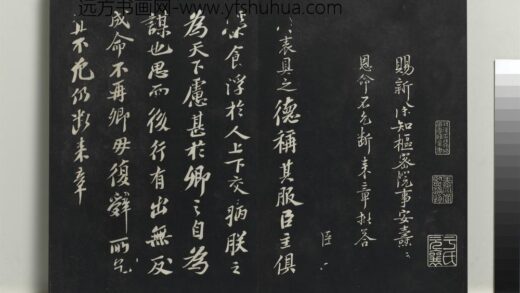 远方书画网-www.yfshuhua.com
賜新除知樞密院事安燾
恩命不允斷來章批答
臣
衷具之德稱其服臣主俱
榮食浮於人上下交病朕之
為天下慮甚於卿之自為
謀也思而後行有出無反
成命不再卿毋復辭所乞
宜不允仍斷來章